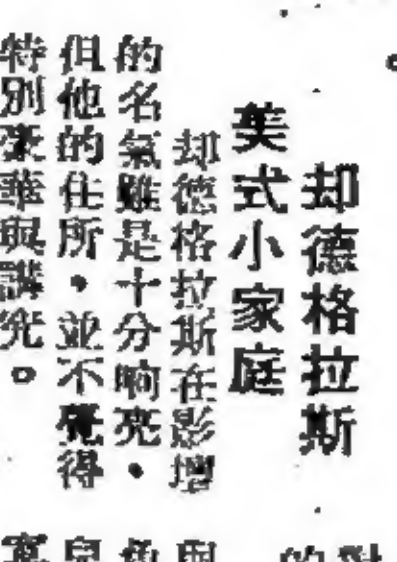 却德格拉斯
美式小家庭
却德格拉斯在影壇
的名氣雖是十分响亮，
但他的住所，並不覺得
特別豪華與講究。